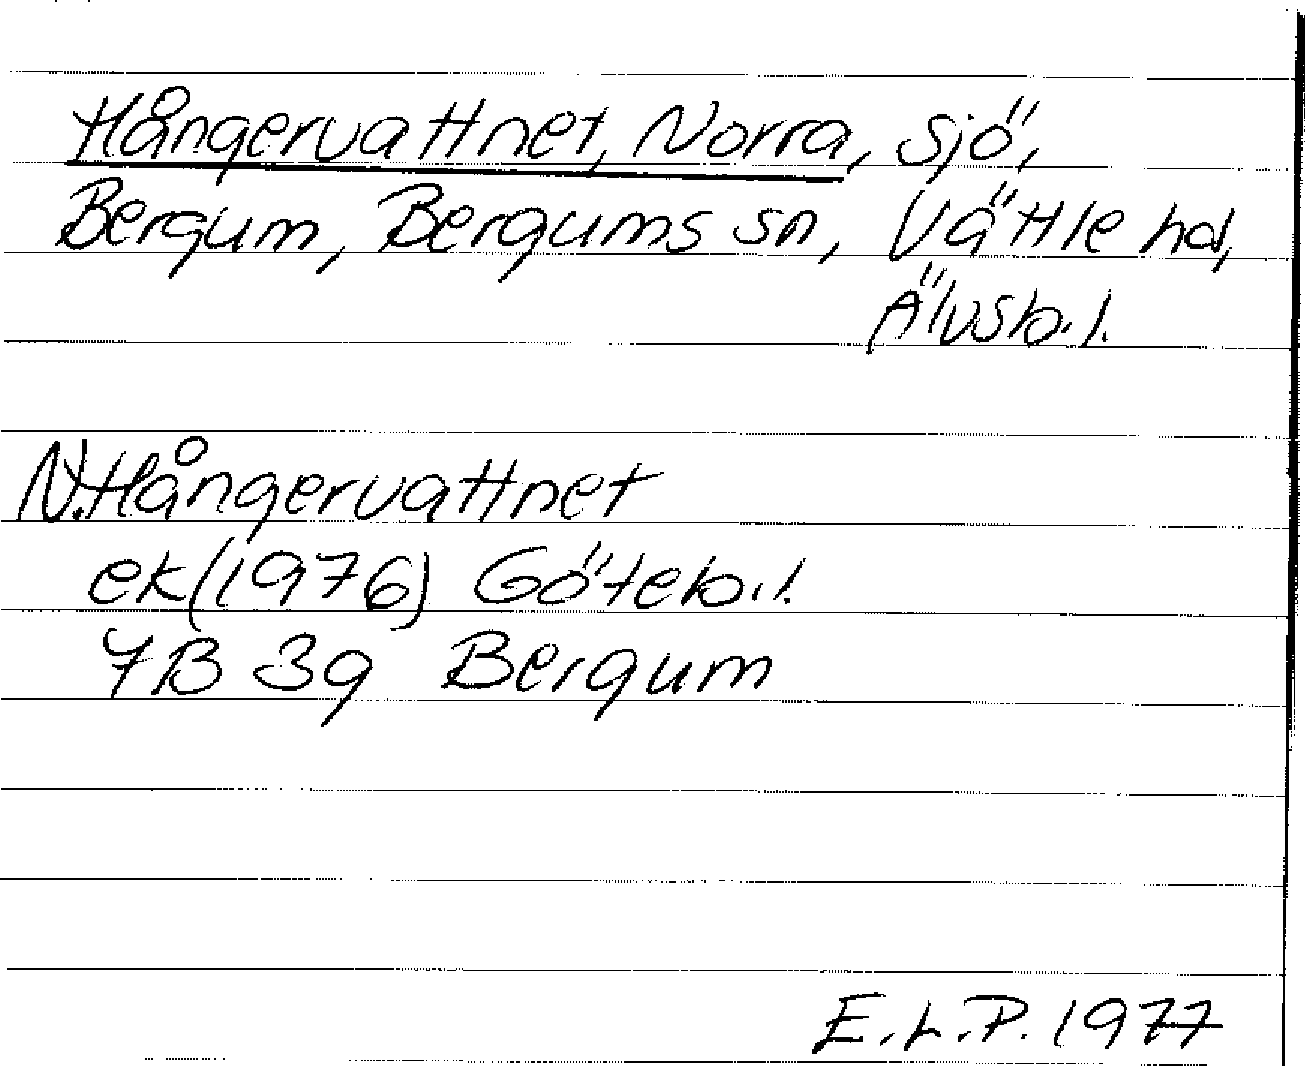 Hångervattnet, Norra, sjö,
Bergum, Bergums sn, Vättle hd,
Älvsb.l.
N.Hångervattnet
ek(1976) Göteb.l.
7B 3g Bergum
E.L.P. 1977